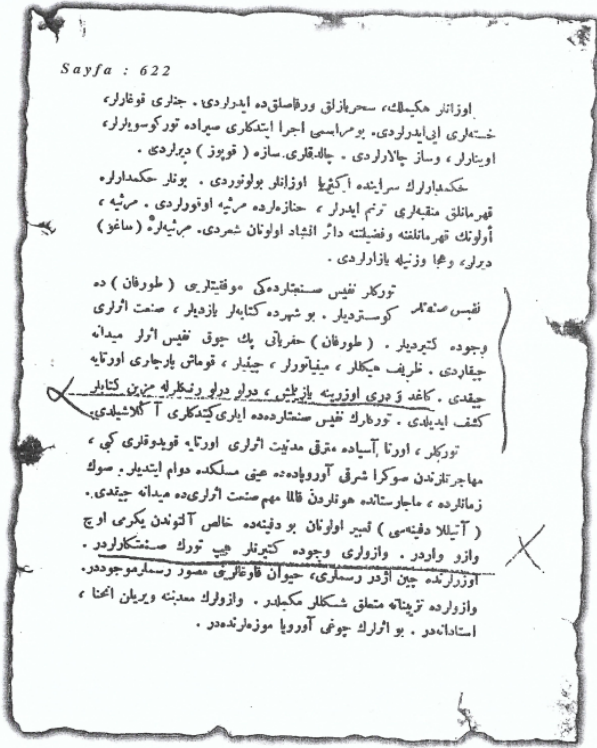 Sayfa : 622
اوزانلر حكيملك، سحربازلق ورقاصلق‌ده ايدرلردى. جنلرى قوغارلر،
خسته‌لرى ايى ايدرلردى. بو مراسمى اجرا ايتدكلرى صيراده توركو سويلرلر،
اوينارلر، وساز چالارلردى. چالدقلرى سازه (قوپوز) ديرلردى.
حكمدارلرك سراينده اكثريا اوزانلر بولونوردى. بونلر حكمدارلره
قهرمانلق منقبه‌لرى ترنم ايدرلر، جنازه‌لرده مرثيه اوقورلردى. مرثيه،
أولونك قهرمانلغنه وفضيلتنه دائر انشاد اولونان شعردى. مرثيه‌لره (ساغو)
ديرلر، وهجا وزنيله يازارلردى.
نفيس صنعتلر
توركلر نفيس صنعتلرده‌كى موفقيتلرينى (طورفان) ده
كوستردیلر. بو شهرده كتابه‌لر يازديلر، صنعت اثرلرى
وجوده كتيرديلر. (طورفان) حفرياتى پك چوق نفيس اثرلر ميدانه
چيقاردى. ظريف هيكللر، مينياتورلر، چينيلر، قوماش پارچالرى اورتايه
چيقدى. كاغد و درى اوزرينه يازيلمش، درلو درلو رنكلرله مزين كتابلر
كشف ايديلدى. توركلرك نفيس صنعتلرده‌ده ايلرى كيتدكلرى آكلاشيلدى.
توركلر، اورتا آسياده مترقى مدنيت اثرلرى اورتايه قويدوقلرى كبى،
مهاجرتلرندن صوكرا شرقى آوروپاده‌ده عينى مسلكده دوام ايتديلر. صوك
زمانلرده، ماجارستانده هونلردن قالما مهم صنعت اثرلرى‌ده ميدانه چيقدى.
(آتيللا دفينه‌سى) تعبير اولونان بو دفينه‌ده خالص آلتوندن يكرمى اوچ
وازو واردر. وازولرى وجوده كتيرنلر هپ تورك صنعتكارلردر.
اوزرلرنده چين اژدر رسملرى، حيوان قاوغالرينى مصور رسملر موجوددر.
وازولرده تزييناته متعلق شكللر مكملدر. وازولرك معدننه ويريلن انحنا،
استادانه‌در. بو اثرلرك چوغى آوروپا موزه‌لرنده‌در.